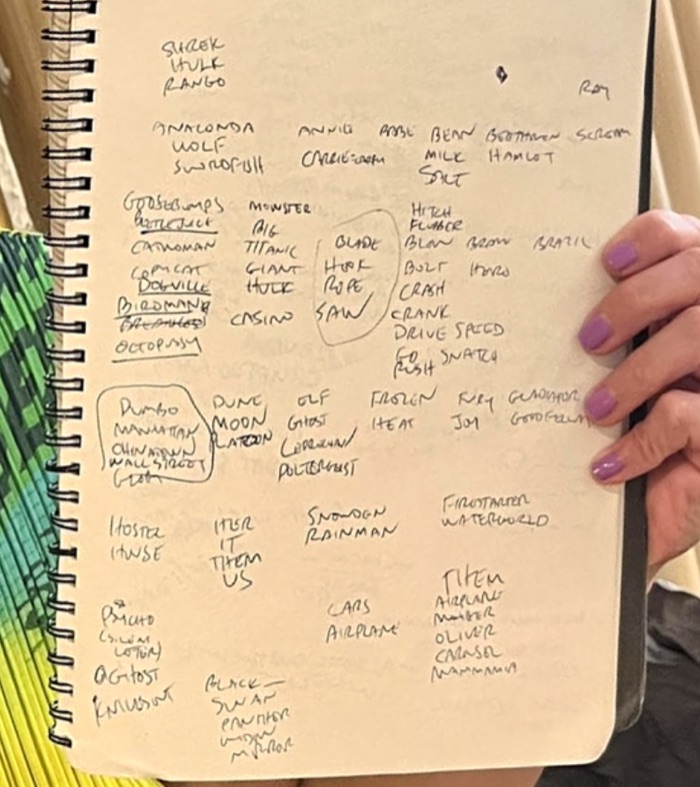 SHREK
HULK
RANGO
RAY
ANACONDA ANNIE BABE BEAN BEETHOVEN SCREAM
WOLF MILK HAMLET
SWORDFISH SALT
GOOSEBUMPS MONSTER HITCH
BEETLEJUICE BIG FLUBBER
CATWOMAN TITANIC BLADE BLOW BRAZIL
COPYCAT GIANT HOOK BOLT HERO
DOGVILLE HULK ROPE CRASH
BIRDMAN SAW CRANK
CASINO DRIVE SPEED
OCTOPUSSY GO SNATCH
PUSH
DUMBO DUNE ELF FROZEN FURY GLADIATOR
MANHATTAN MOON GHOST HEAT JOY GOODFELLA
CHINATOWN PLATOON LEPRECHAUN
WALL STREET POLTERGEIST
HOSTEL HER SNOWDEN FIRESTARTER
HOUSE IT RAINMAN WATERWORLD
THEM
US
THEM
PSYCHO CARS AIRPLANE
(SILENT AIRPLANE
LETTER) OLIVER
CAROUSEL
GHOST MAMMAMIA
BLACK —
SWAN
PANTHER
WIDOW
MIRROR